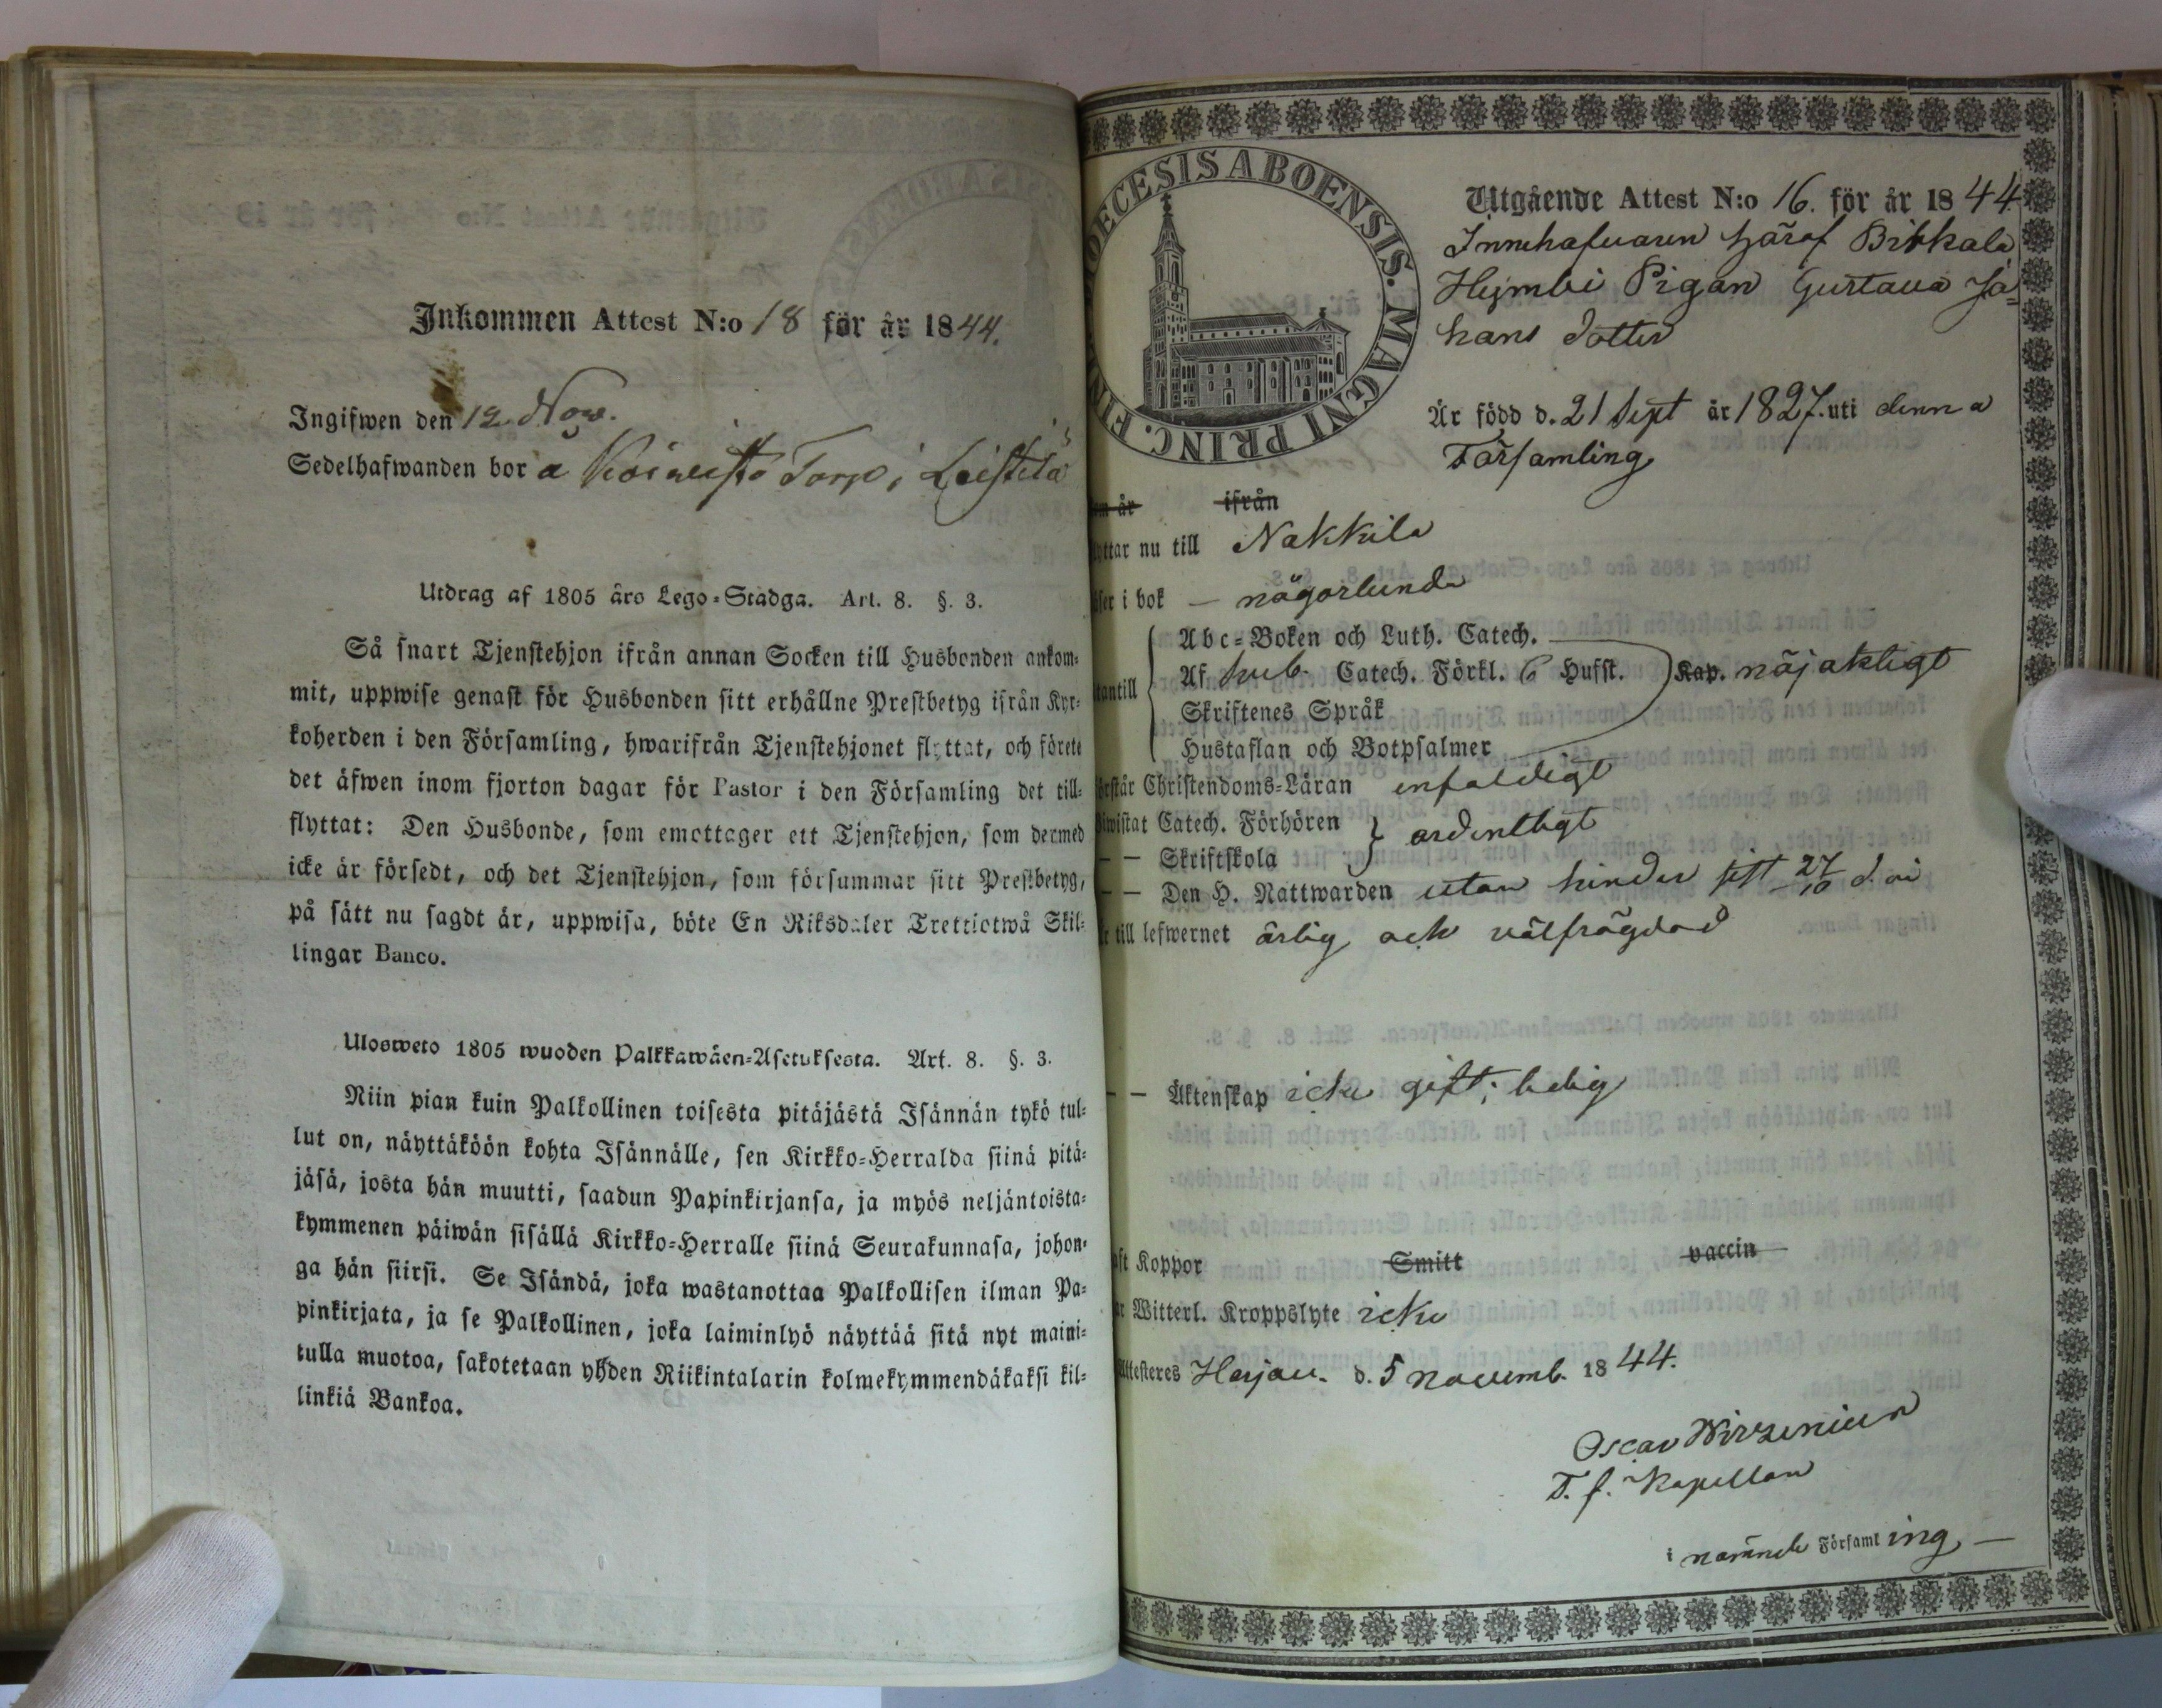 Inkommen Attest N:o 18 för år 1844.
Ingifwen den 12 Now.
Sedelhafwanden bor å Koiwisto Torp i Leistilä
Utdrag af 1805 års Lego-Stadga. Art. 8. §. 3.
Så snart Tjenstehjon ifrån annan Socken till Husbonden ankom-
mit, uppwise genast för Husbonden sitt erhållne Prestbetyg ifrån Kyr-
koherden i den Församling, hwarifrån Tjenstehjonet flyttat, och förete
det äfwen inom fjorton dagar för Pastor i den Församling det till-
flyttat: Den Husbonde, som emottager ett Tjenstehjon, som dermed
icke är försedt, och det Tjenstehjon, som försummar sitt Prestbetyg,
på sätt nu sagdt är, uppwisa, böte En Riksdaler Trettiotwå Skil-
lingar Banco.
Ulosweto 1805 wuoden Palkkawäen-Asetuksesta. Art. 8. §. 3.
Niin pian kuin Palkollinen toisesta pitäjästä Isännän tykö tul-
lut on, näyttäköön kohta Isännälle, sen Kirkko-Herralda siinä pitä-
jäsä, josta hän muutti, saadun Papinkirjansa, ja myös neljäntoista-
kymmenen päiwän sisällä Kirkko-Herralle siinä Seurakunnasa, johon-
ga hän siirsi. Se Isändä, joka wastanottaa Palkollisen ilman Pa-
pinkirjata, ja se Palkollinen, joka laiminlyö näyttää sitä nyt maini-
tulla muotoa, sakotetaan yhden Riikintalarin kolmekymmendäkaksi kil-
linkiä Bankoa.
DIOECESIS ABOENSIS. MAGNI PRINC. FIN
Utgående Attest N:o 16. för år 1844
Innehafvaren häraf Birkkala
Hyynibi Pigan Gustava Jo=
hans dotter
Är född d. 21 Sept år 1827. uti denna
Församling
om år ifrån
yttar nu till Nakkila
äser i bok — någorlunda
tantill
Abc-Boken och Luth. Catech.
Af Sveb. Catech. Förkl. 6 Hufst. Kap. nöjaktigt
Skriftenes Språk
Hustaflan och Botpsalmer
örstår Christendoms-Läran enfaldigt
iwistat Catech. Förhören } ordentligt
— — Skriftskola
— — Den H. Nattwarden utan hinder sist 27/10 d. år
r till lefwernet ärlig och välfrägdad
— — Äktenskap icke gift; ledig
aft Koppor Smitt vaccin
ar Witterl. Kroppslyte icke
Attesteres Harjau. d. 5 novemb. 1844.
Oscar Wirzenius
T. f. Kapellan
i nämnde Församling —